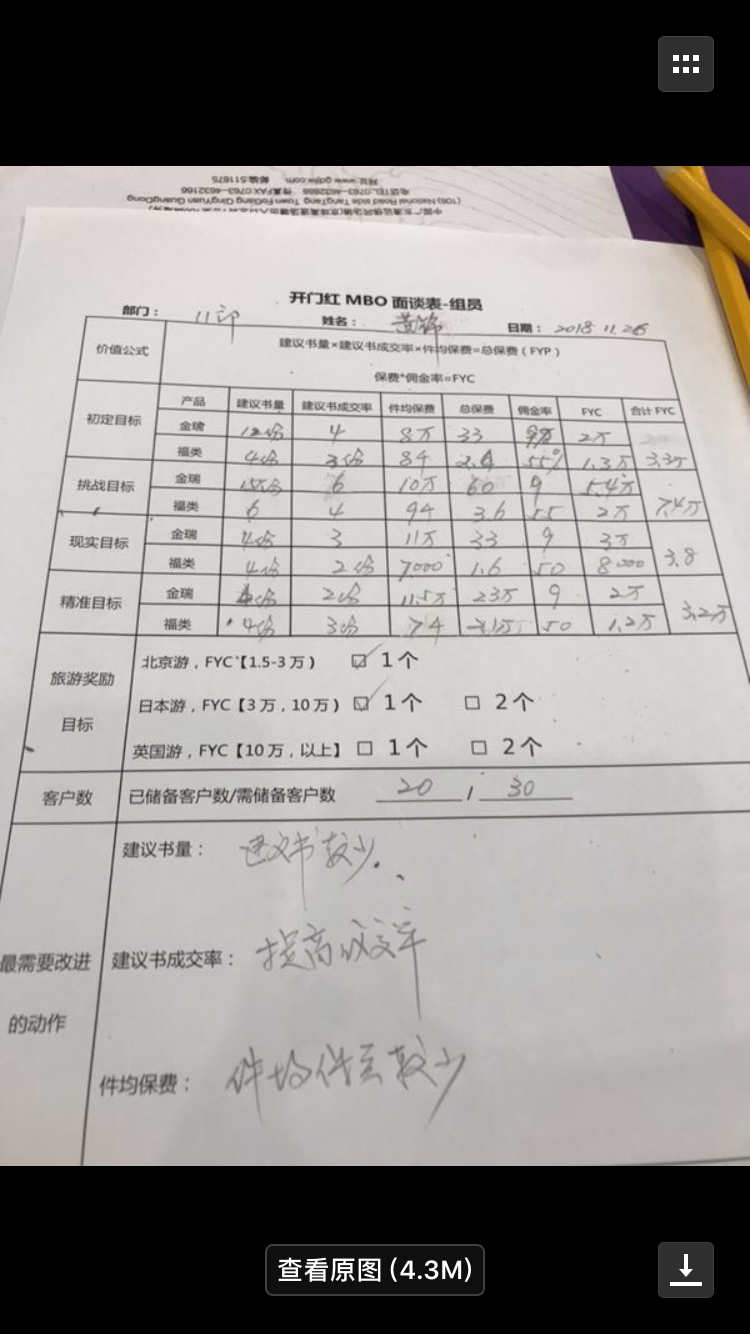 网址:www.gdjlw.com 邮编:511675
电话TEL:0763-4632888 传真FAX:0763-4632166
(106) National Road side TangTang Town FoGang QingYuan GuangDong
开门红 MBO 面谈表-组员
部门: 姓名: 日期: 2018 11.26
价值公式 建议书量×建议书成交率×件均保费=总保费(FYP)
保费*佣金率=FYC
初定目标 产品 建议书量 建议书成交率 件均保费 总保费 佣金率 FYC 合计 FYC
金瑞 12份 4 8万 33 2万
福类 4份 3份 84 2.4 55% 1.3万 3.3万
挑战目标 金瑞 15份 6 10万 60 9 5.4万
福类 6 4 94 3.6 55 2万 7.4万
现实目标 金瑞 4份 3 11万 33 9 3万
福类 4份 2份 7000 1.6 50 8000 3.8
精准目标 金瑞 2份 11.5万 23万 9 2万
福类 4份 3份 74 50 1.2万 3.2万
旅游奖励
目标
北京游,FYC【1.5-3万) ☑ 1个
日本游,FYC【3万,10万) ☑ 1个 □ 2个
英国游,FYC【10万,以上】 □ 1个 □ 2个
客户数 已储备客户数/需储备客户数 20 / 30
最需要改进
的动作
建议书量: 建议书较少.
建议书成交率: 提高成交率
件均保费: 件均 较少
查看原图 (4.3M)